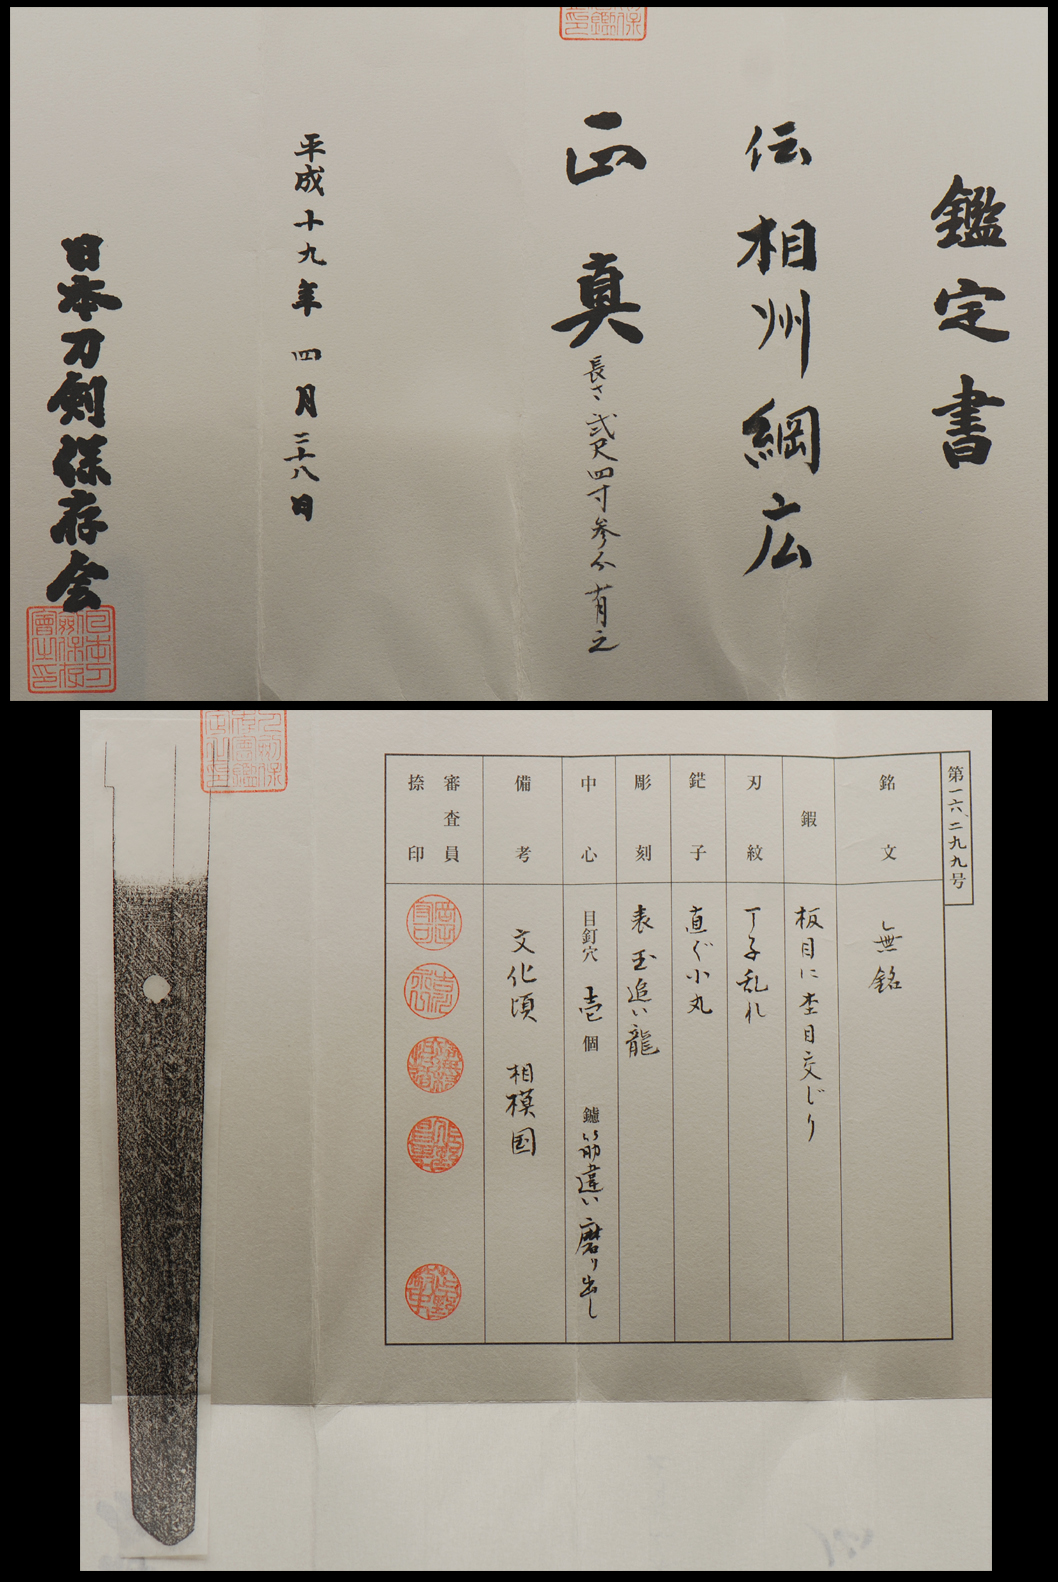 鑑定書
伝相州綱広
正真
長さ弐尺四寸参分有之
平成十九年四月二十八日
日本刀剣保存会
第一六、二九九号
銘文
無銘
鍜
板目に杢目交じり
刃紋
丁子乱れ
鋩子
直ぐ小丸
彫刻
表玉追い龍
中心
目釘穴 壱個 鑢筋違い磨り出し
備考
文化頃 相模国
審査員
捺印